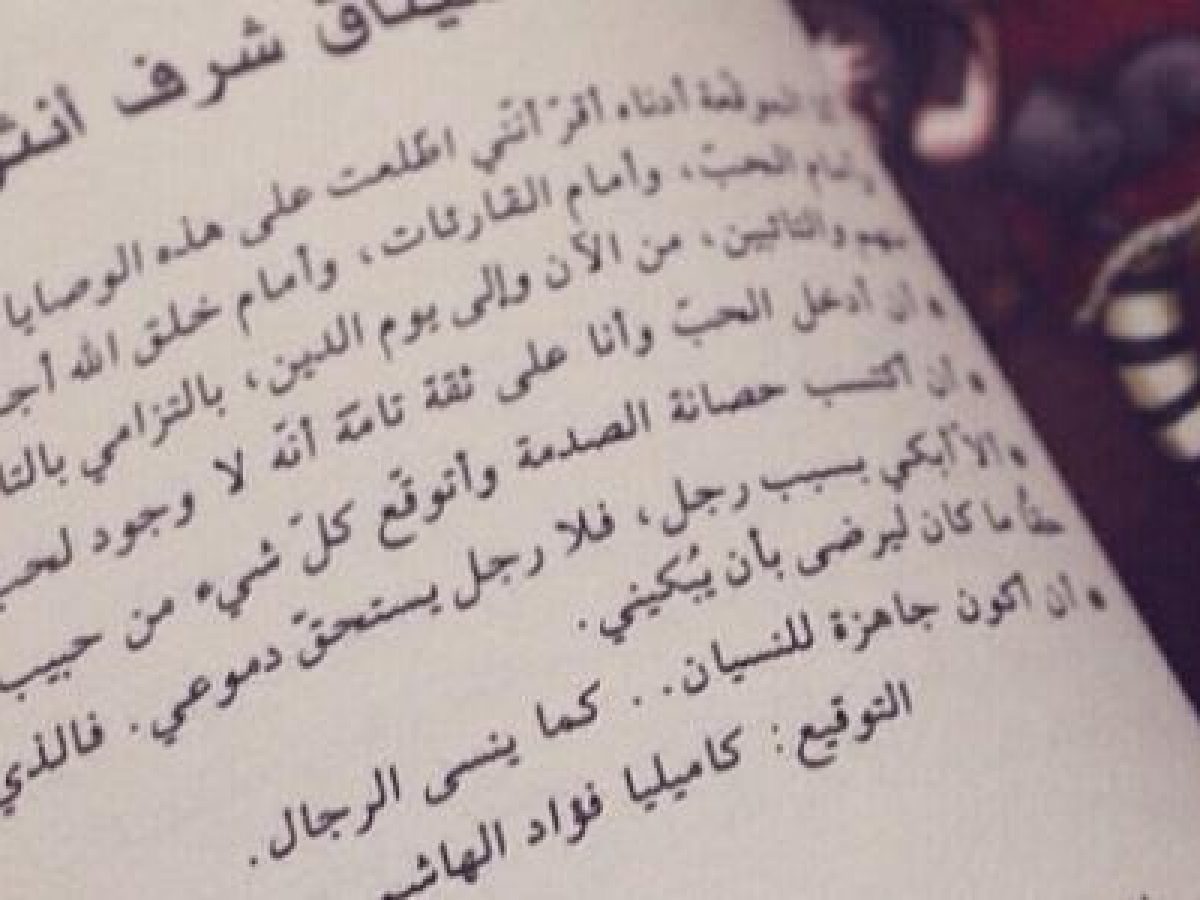 ميثاق شرف أنثوي
الموقعة أدناه أقرّ أنّني اطّلعت على هذه الوصايا
وأمام الحبّ، وأمام القارئات، وأمام خلق الله أجـ
والتائبين، من الآن وإلى يوم الدين، بالتزامي بالتا
• أن أدخل الحبّ وأنا على ثقة تامّة أنّه لا وجود لحب
• أن أكتسب حصانة الصدمة وأتوقّع كلّ شيء من حبيب
• ألّا أبكي بسبب رجل، فلا رجل يستحقّ دموعي. فالذي
حقاً ما كان ليرضى بأن يُبكيني.
• أن أكون جاهزة للنسيان.. كما ينسى الرجال.
التوقيع: كاميليا فؤاد الهاشـ